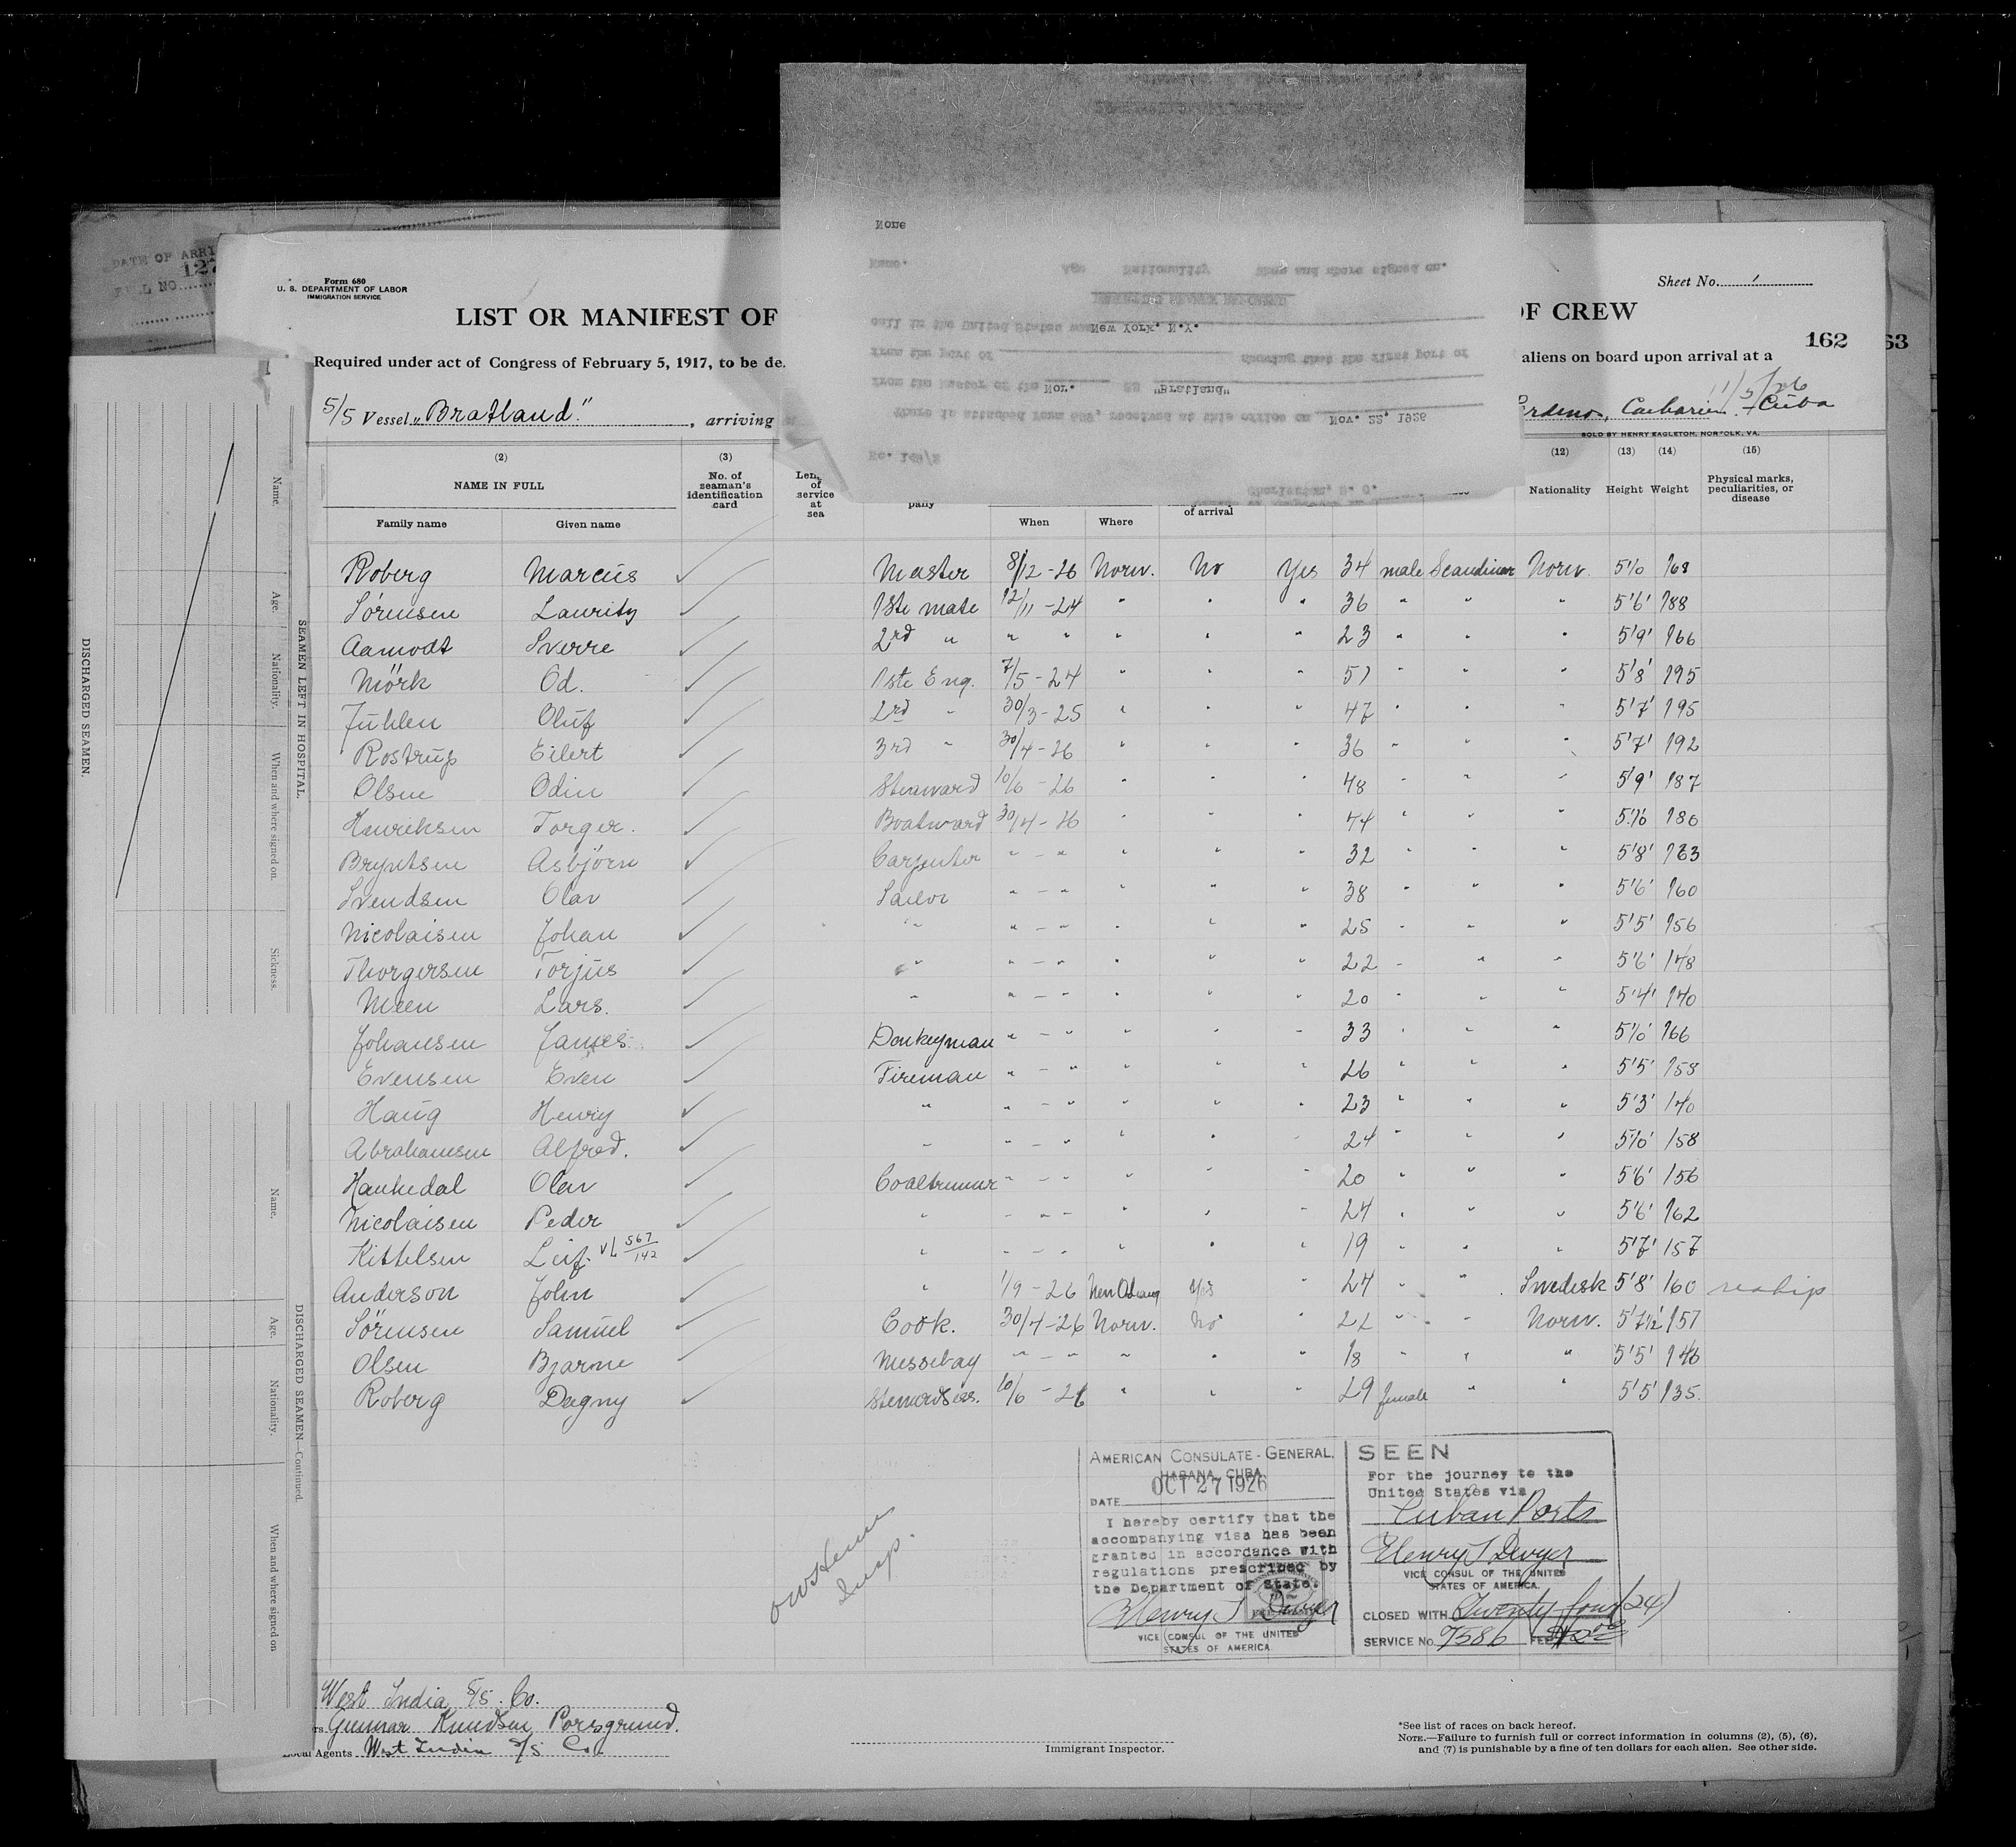 DATE OF ARRI
127
Form 680
U. S. DEPARTMENT OF LABOR
IMMIGRATION SERVICE
Sheet No. 1
LIST OR MANIFEST OF
OF CREW
162
63
Required under act of Congress of February 5, 1917, to be de
aliens on board upon arrival at a
11/5/26
S/S Vessel "Bratland", arriving
Caibarien - Cuba
SOLD BY HENRY EAGLETON, NORFOLK, VA.
None
Name. Age Nationality When and where signed on.
call in the United States was New York, N.Y.
from the port of showing that the first port of
from the Master of the Nor. SS "Bratland"
There is attached Form 689, received at this office on Nov. 22, 1926
Charleston, S. C.
(2) (3) (12) (13) (14) (15)
NAME IN FULL
Family name Given name
No. of seaman's identification card
Length of service at sea
When Where
of arrival
Nationality Height Weight
Physical marks, peculiarities, or disease
Roberg Marcus Master 8/12-26 Norw. No Yes 34 male Norw. 168
Sörensen Lauritz 1ste mate 12/11-24 " " " 36 " " " 5'6' 188
Aamodt Sverre 2rd " " " " " " 23 " " " 5'9' 166
Mörk Od. 1ste Eng. 7/5-24 " " " 51 " " " 5'8' 195
Juhlen Oluf 2rd " 30/3-25 " " " 47 " " " 5'7' 195
Rostrup Eilert 3rd " 30/4-26 " " " 36 " " " 5'7' 192
Olsen Odin Steuward 10/6-26 " " " 48 " " " 5'9' 187
Henriksen Torger. Boatsward 30/4-26 " " " 44 " " " 180
Bryntsen Asbjörn Carpenter " - " " " " 32 " " " 5'8' 163
Svendsen Olav Sailor " - " " " " 38 " " " 5'6' 160
Nicolaisen Johan " " - " " " " 25 " " " 5'5' 156
Thorgersen Torjus " " - " " " " 22 " " " 5'6' 148
Meen Lars. " " - " " " " 20 " " " 5'4' 140
Johansen James Donkeyman " - " " " " 33 " " " 166
Evensen Even Fireman " - " " " " 26 " " " 5'5' 158
Haug Henry " " - " " " " 23 " " " 5'3' 140
Abrahamsen Alfred. " " - " " " " 24 " " " 158
Haukedal Olav Coaltrimmer " - " " " " 20 " " " 5'6' 156
Nicolaisen Peder " " - " " " " 24 " " " 5'6' 162
Kittelsen Leif. VL 567/142 " " - " " " " 19 " " " 5'7' 157
Anderson John " 1/9-26 Yes " 24 " " Swedisk 5'8' 160
Sörensen Samuel Cook. 30/4-26 Norw. No " 22 " " Norw. 5'7½' 157
Olsen Bjarne Messebay " - " " " " 18 " " " 5'5' 146
Roberg Dagny Stewardsess. 10/6-26 " " " 29 female " " 5'5' 135
AMERICAN CONSULATE-GENERAL,
HABANA, CUBA
DATE OCT 27 1926
I hereby certify that the
accompanying visa has been
granted in accordance with
regulations prescribed by
the Department of State.
Henry T Dwyer
VICE CONSUL OF THE UNITED
STATES OF AMERICA
SEEN
For the journey to the
United States via
Cuban Ports
Henry T Dwyer
VICE CONSUL OF THE UNITED
STATES OF AMERICA.
CLOSED WITH Twenty four (24)
SERVICE No. 7586 FEE
Insp.
West India S/S. Co.
Gunnar Knudsen Porsgrund.
Local Agents West India S/S Co.
Immigrant Inspector.
*See list of races on back hereof.
NOTE.—Failure to furnish full or correct information in columns (2), (5), (6),
and (7) is punishable by a fine of ten dollars for each alien. See other side.
DISCHARGED SEAMEN.
SEAMEN LEFT IN HOSPITAL.
Name.
Age.
Nationality.
When and where signed on.
Sickness.
DISCHARGED SEAMEN—Continued.
Name.
Age.
Nationality.
When and where signed on